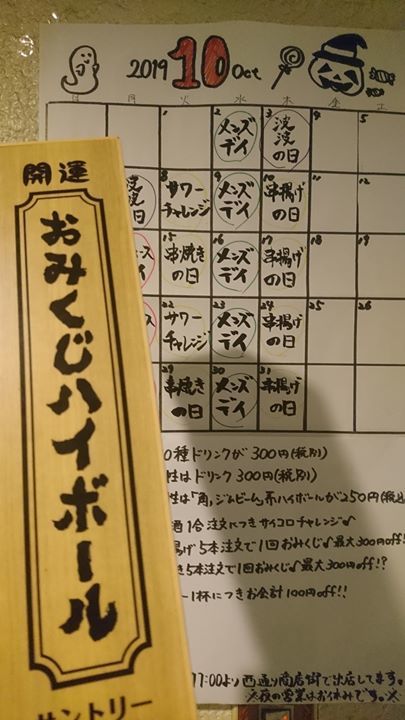 2019 10 Oct
日 月 火 水 木 金 土
2 メンズデイ
3 波波の日
4
5
波の日
8 サワーチャレンジ
9 メンズデイ
10 串揚げの日
11
12
15 串焼きの日
16 メンズデイ
17 串揚げの日
18
19
22 サワーチャレンジ
23 メンズデイ
24 串揚げの日
25
26
29 串焼きの日
30 メンズデイ
31 串揚げの日
0種ドリンクが300円(税別)
性はドリンク300円(税別)
性は「角」ジムビーム
ハイボールが250円(税込
酒1合注文につきサイコロチャレンジ♪
揚げ5本注文で1回おみくじ♪最大300円off!
き5本注文で1回おみくじ♪最大300円off!?
ー1杯につきお会計100円off!!
17:00より西通り商店街で出店してます。
※夜の営業はお休みです。※
開運
おみくじハイボール
サントリー